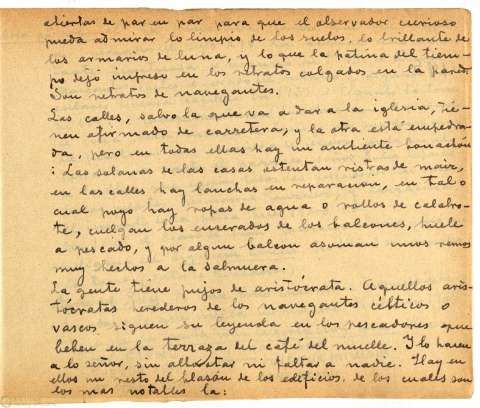 abiertas de par en par para que el observador curioso
pueda admirar lo limpio de los suelos, lo brillante de
los armarios de luna, y lo que la patina del tiem-
po dejó impreso en los retratos colgados en la pared.
Son retratos de navegantes.
Las calles, salvo la que va a dar a la iglesia, tie-
nen afirmado de carretera, y la otra está empedra-
da, pero en todas ellas hay un ambiente bonachon
: Las solanas de las casas ostentan ristras de maiz,
en las calles hay lanchas en reparacion, en tal o
cual poyo hay ropas de agua o rollos de calabro-
te, cuelgan los encerados de los balcones, huele
a pescado, y por algun balcon asoman unos remos
muy hechos a la salmuera.
La gente tiene pujos de aristócrata. Aquellos aris-
tócratas herederos de los navegantes célticos o
vascos siguen su leyenda en los pescadores que
beben en la terraza del café del muelle. Y lo hacen
a lo señor, sin alborotar ni faltar a nadie. Hay en
ellos un resto del blasón de los edificios, de los cuales son
los mas notables la: